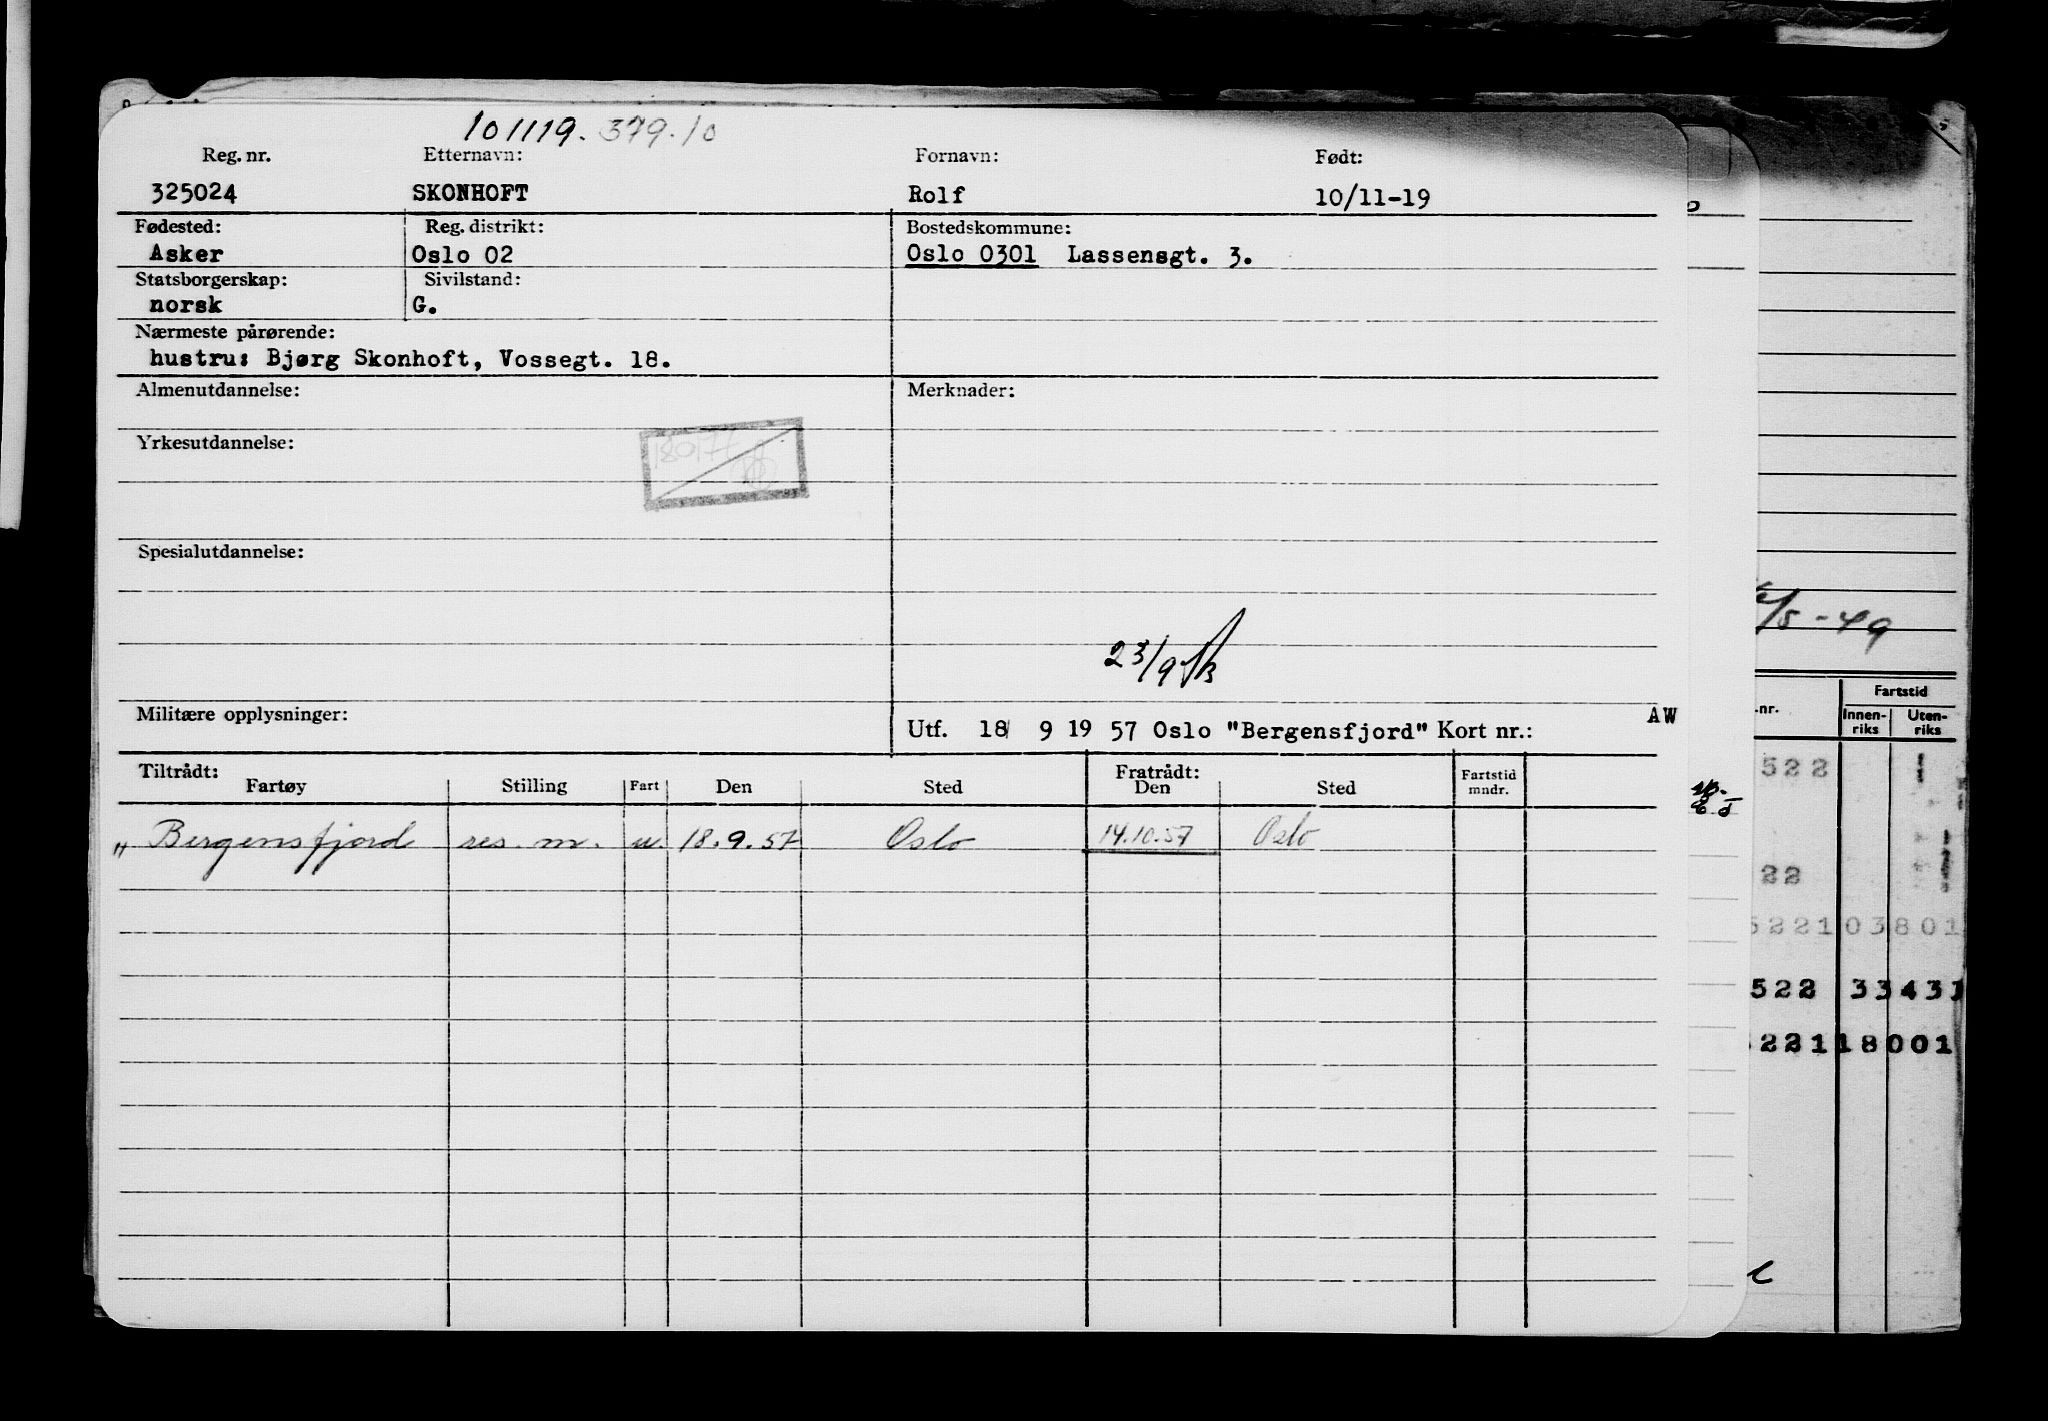 101119. 379.10
Reg. nr. Etternavn: Fornavn: Født:
325024 SKONHOFT Rolf 10/11-19
Fødested: Reg. distrikt: Bostedskommune:
Asker Oslo 02 Oslo 0301 Lassensgt. 3.
Statsborgerskap: Sivilstand:
norsk G.
Nærmeste pårørende:
hustru: Bjørg Skonhoft, Vossegt. 18.
Almenutdannelse: Merknader:
Yrkesutdannelse:
Spesialutdannelse:
23/9
Militære opplysninger: AW
Utf. 18 9 19 57 Oslo "Bergensfjord" Kort nr.:
Tiltrådt: Fratrådt:
Fartøy Stilling Fart Den Sted Den Sted Fartstid mndr.
" Bergensfjord res. m. u. 18.9.57 Oslo 14.10.57 Oslo
/5-49
.nr. Fartstid
Innen-riks Uten-riks
522
22
522103801
522 33431
22118001